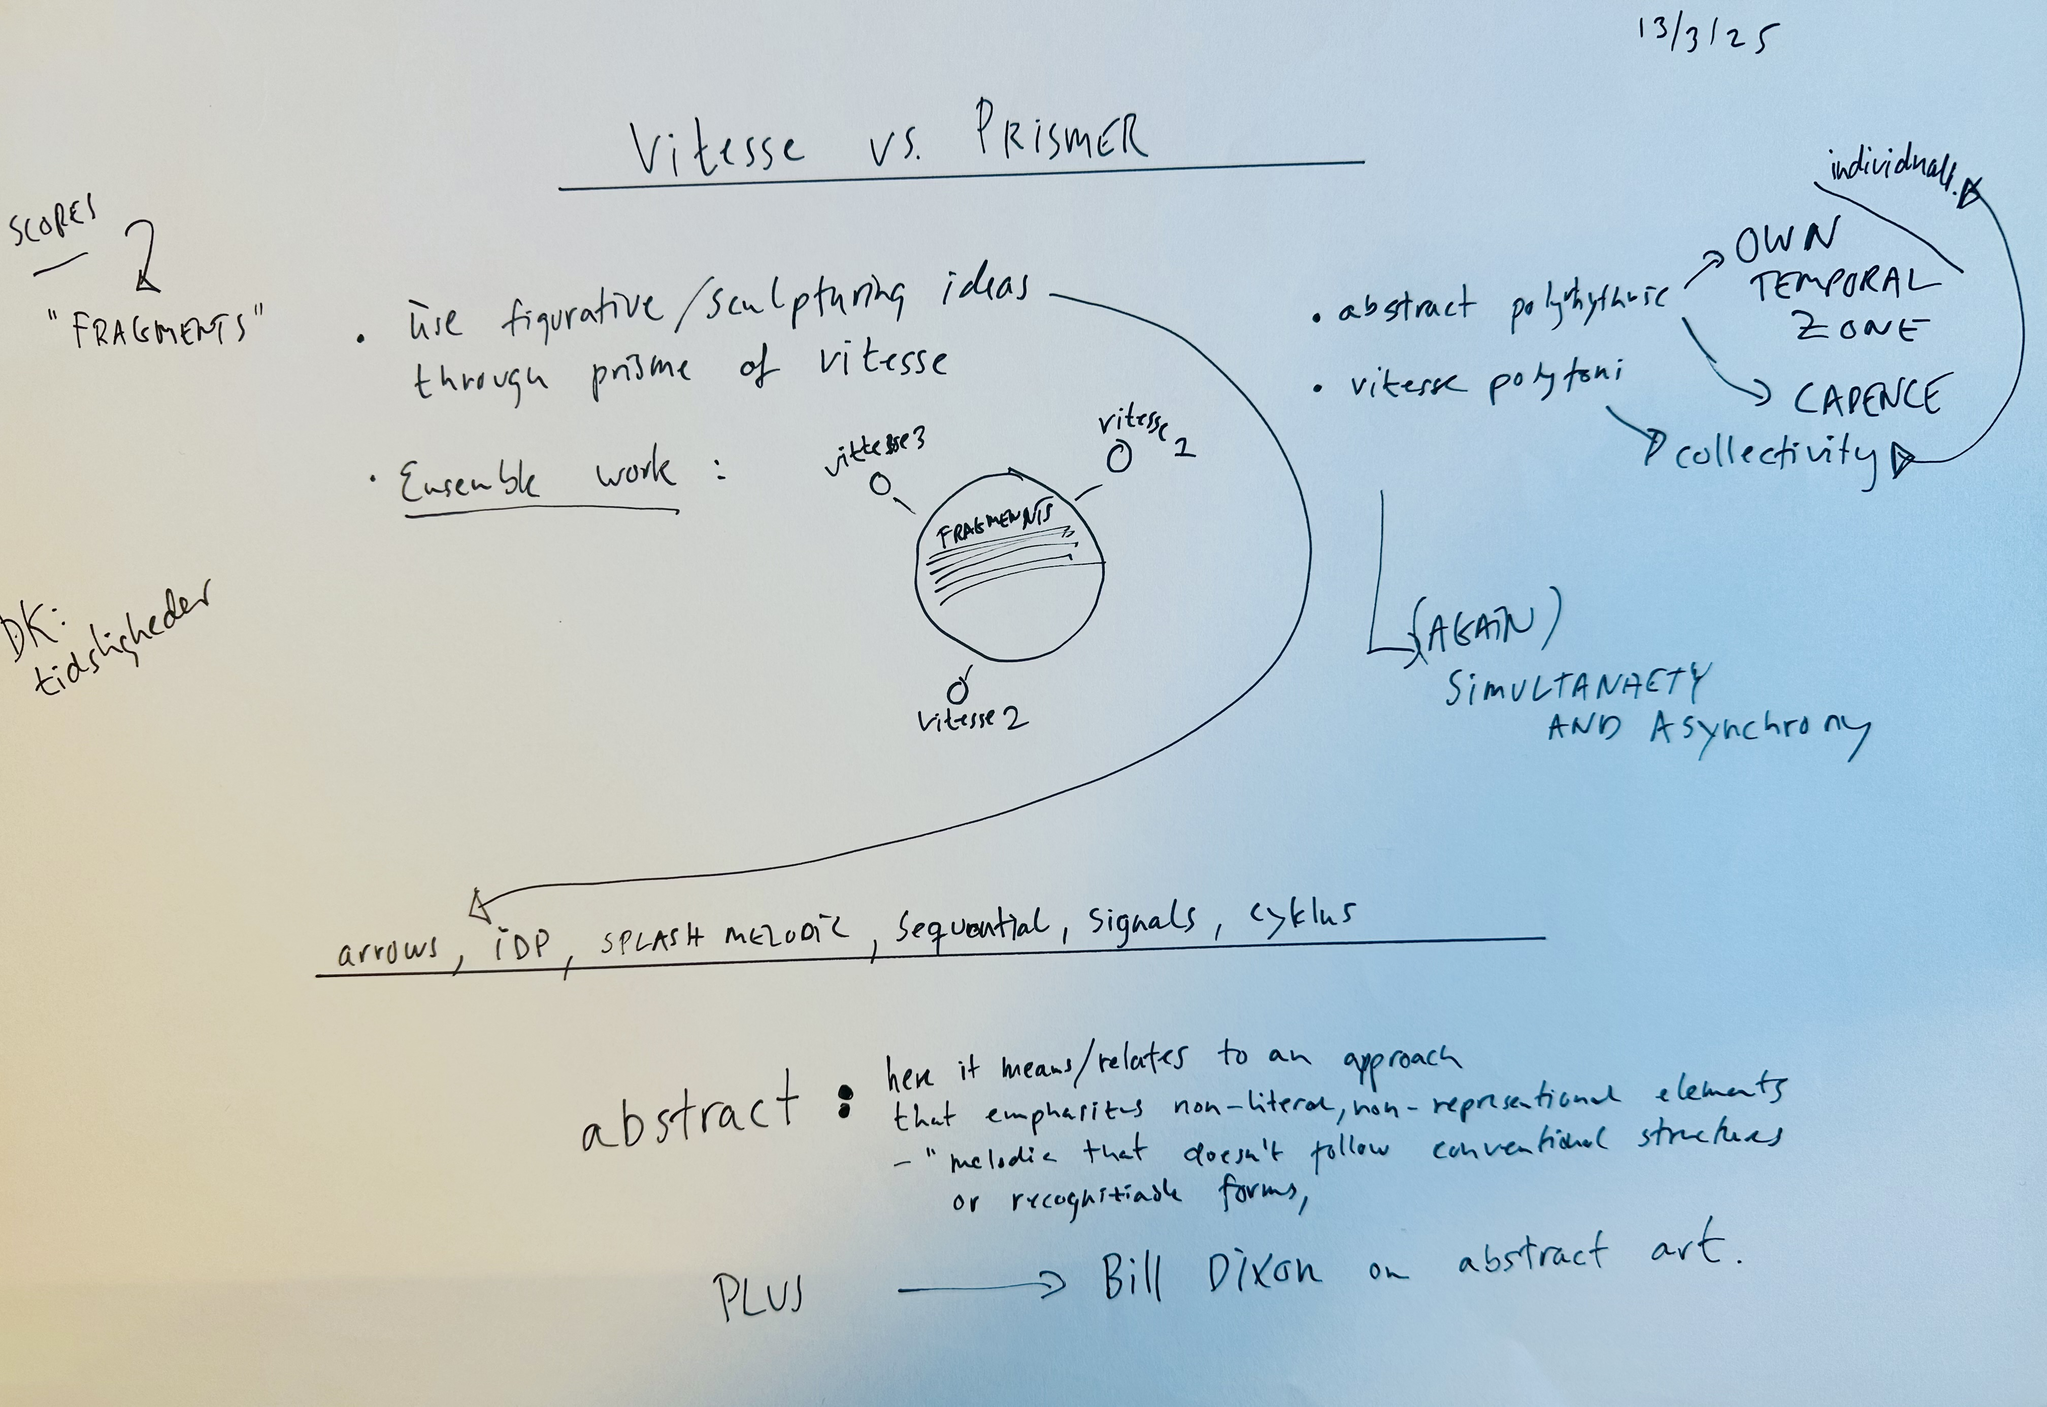 13/3/25
Vitesse vs. PRISMER
SCORES
"FRAGMENTS"
DK:
tidsligheder
• use figurative/sculpturing ideas
through prisme of vitesse
• Ensemble work :
vittesse3
vitesse 1
FRAGMENTS
vitesse 2
individuals
• abstract polyrhythmic
OWN
TEMPORAL
ZONE
CADENCE
• vitesse polyfoni
collectivity
(AGAIN)
SIMULTANAETY
AND Asynchrony
arrows, iDP, SPLASH MELODIC, sequential, signals, cyklus
abstract : here it means/relates to an approach
that emphasizes non-literal, non-representional elements
- "melodic that doesn't follow conventional structures
or recognitiable forms,
PLUS → Bill Dixon on abstract art.